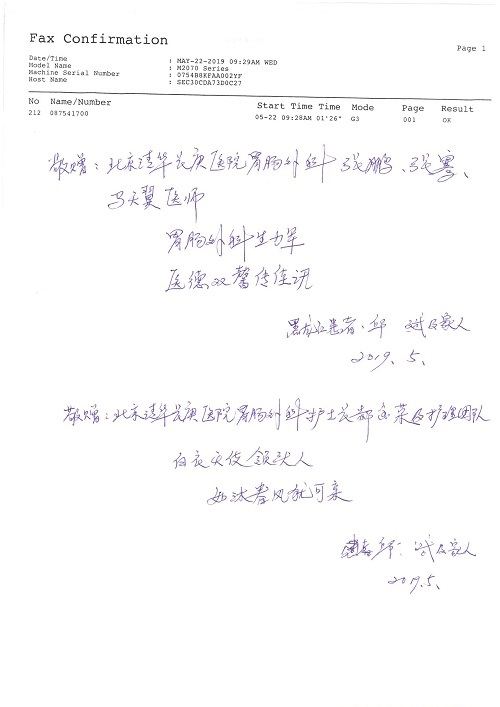 Fax Confirmation
Page 1
Date/Time : MAY-22-2019 09:29AM WED
Model Name : M2070 Series
Machine Serial Number : 0754B8KFAA002YF
Host Name : SEC30CDA73D0C27
No Name/Number Start Time Time Mode Page Result
212 087541700 05-22 09:28AM 01'26" G3 001 OK
敬赠：北京清华长庚医院胃肠外科 张鹏、张骞、
马天翼医师
胃肠外科生力军
医德双馨传佳讯
黑龙江患者：邱 斌及家人
2019、5、
敬赠：北京清华长庚医院胃肠外科护士长郝 菜及护理团队
白衣天使领头人
如沐春风韵可亲
患者邱： 斌及家人
2019.5、